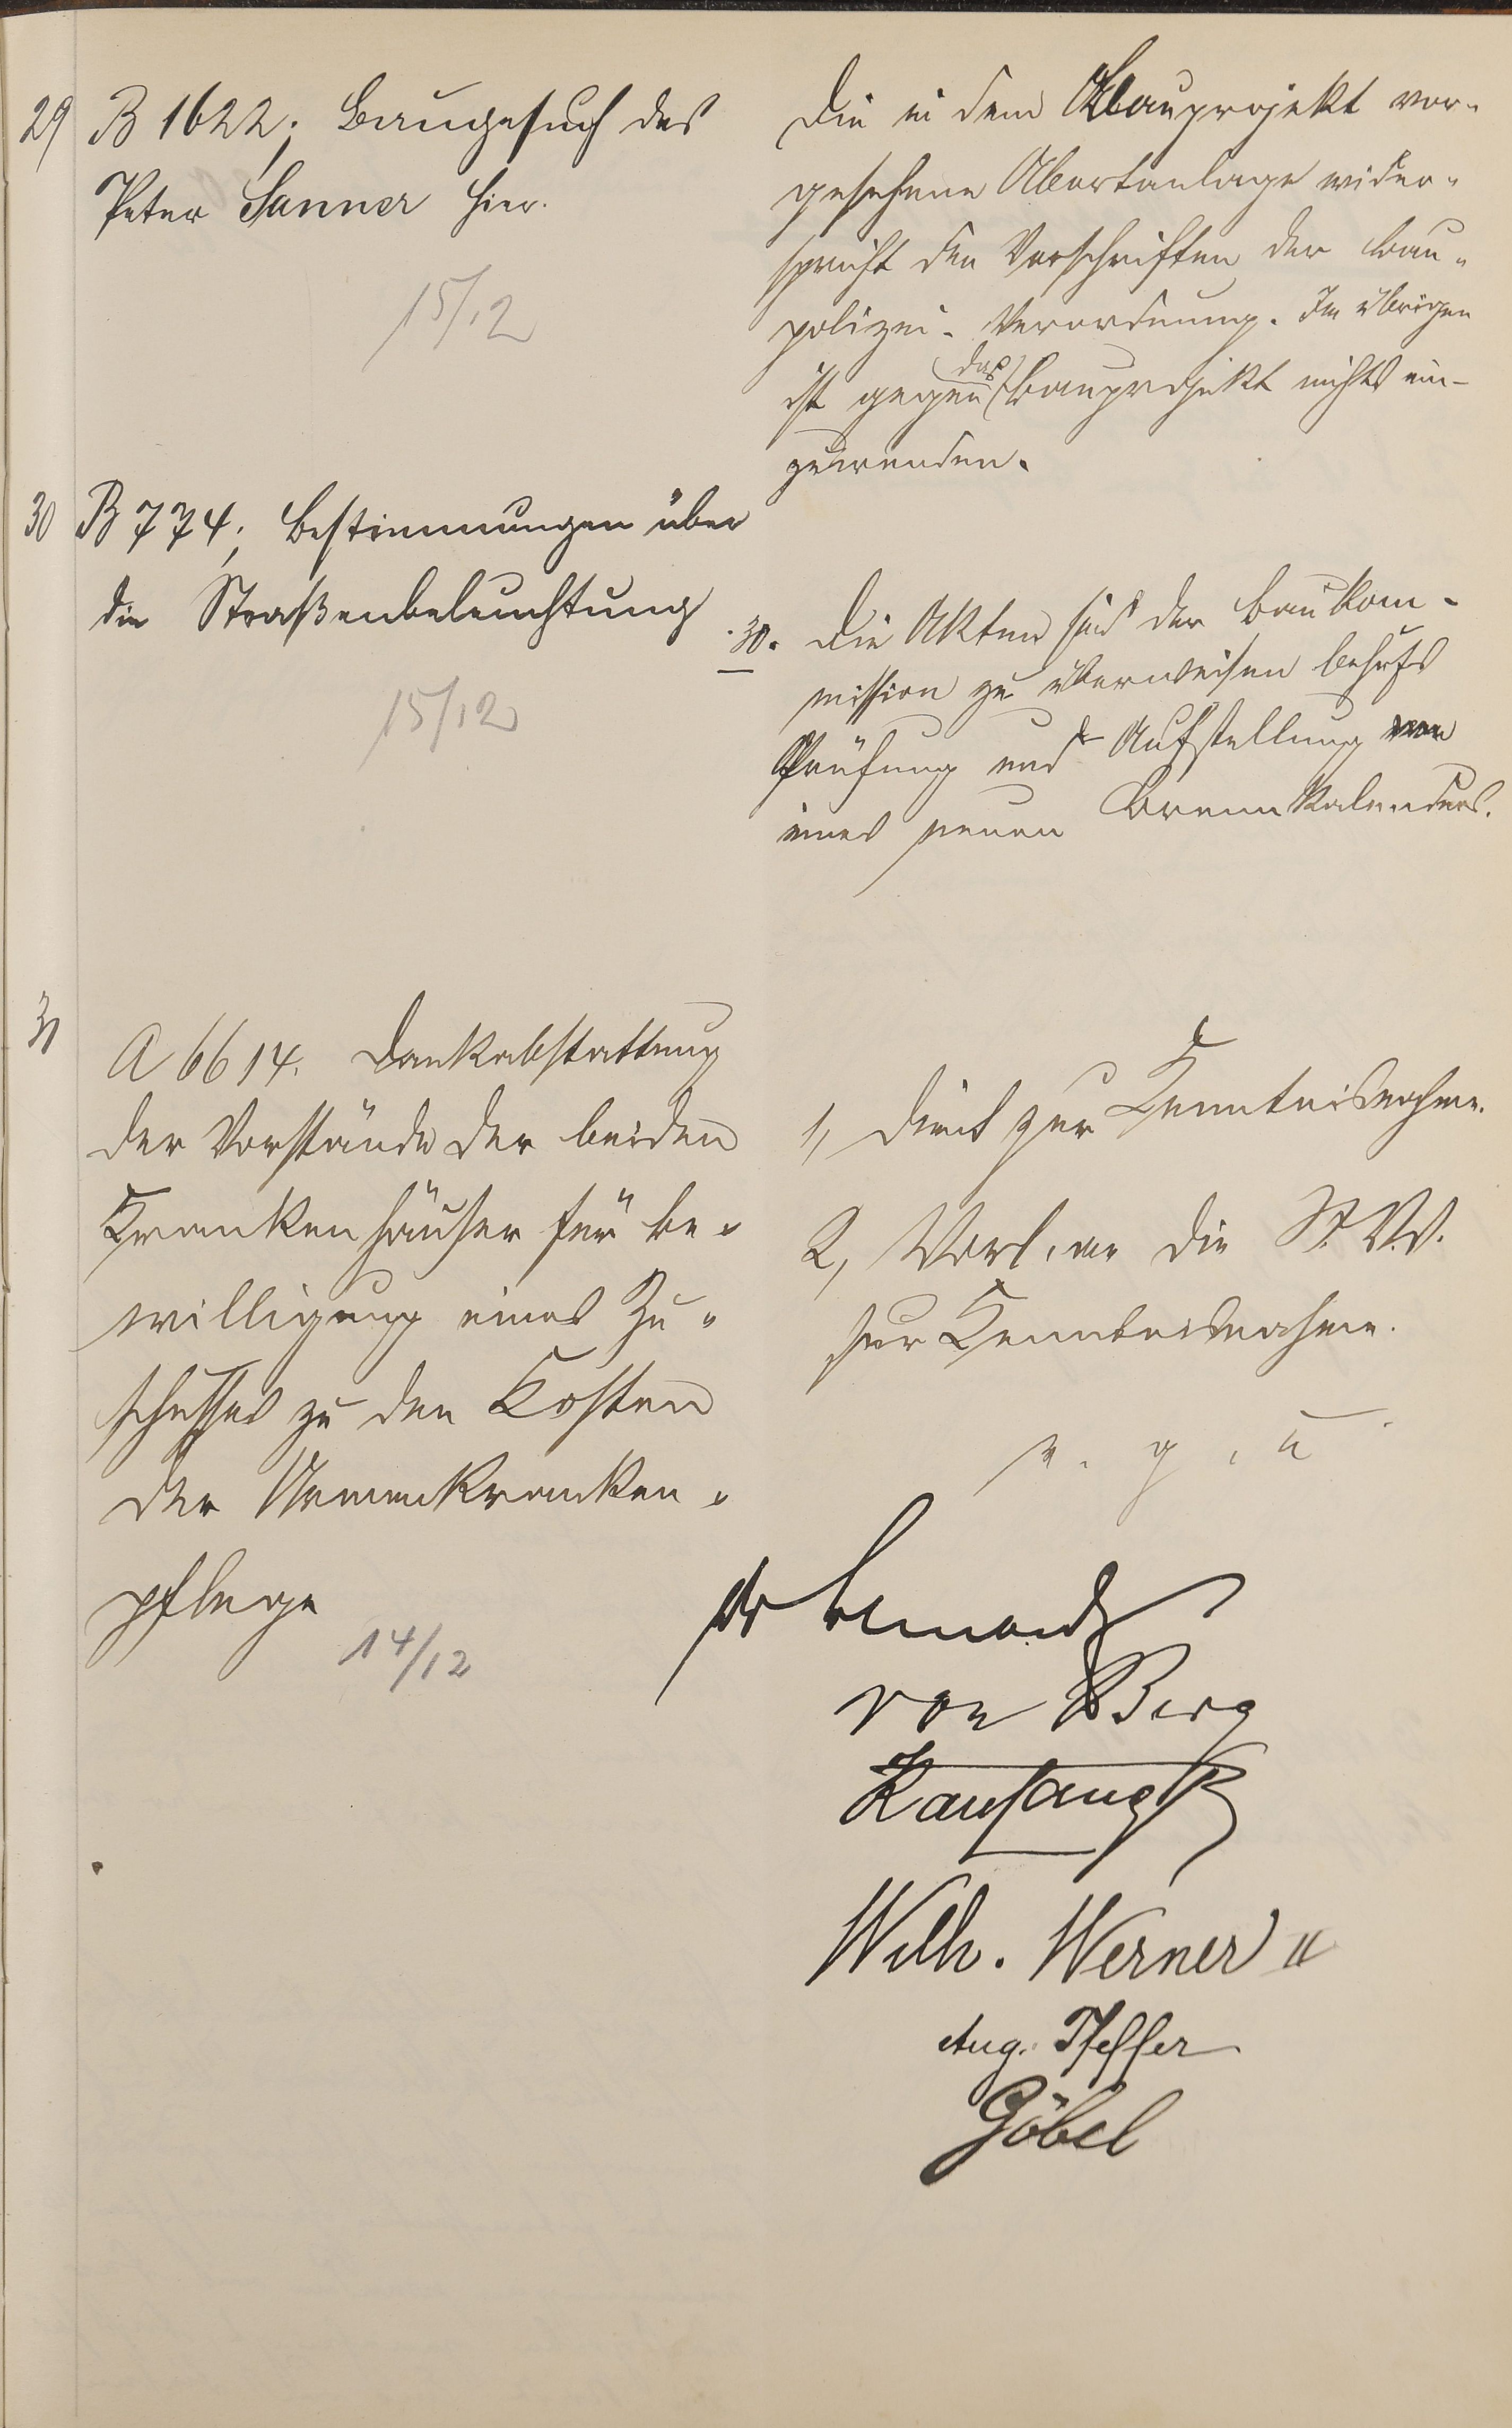 29 B 1622; Baugesuch des
Peter Sanner hier.
15/12
Die in dem Bauprojekt vor-
gesehene Abortanlage wider-
spricht den Vorschriften der Bau-
polizei-Verordnung. Im übrigen
ist gegen das Bauprojekt nichts ein-
zuwenden.
30 B 774; Bestimmungen über
die Straßenbeleuchtung
15/12
30. Die Akten sind der Baukom-
mission zu überweisen behufs
Prüfung und Aufstellung
eines neuen Brennkalenders.
31
A 6614. Dankabstattung
der Vorstände der beiden
Krankenhäuser für Be-
willigung eines Zu-
schusses zu den Kosten
der Armenkranken-
pflege
14/12
1, Dient zur Kenntnisnahme.
2, Vorl. an die St.V.V.
zur Kenntnisnahme.
v. g. u.
von Berg
Kaufang
Wilh. Werner II
Aug. Pfeffer
Göbel